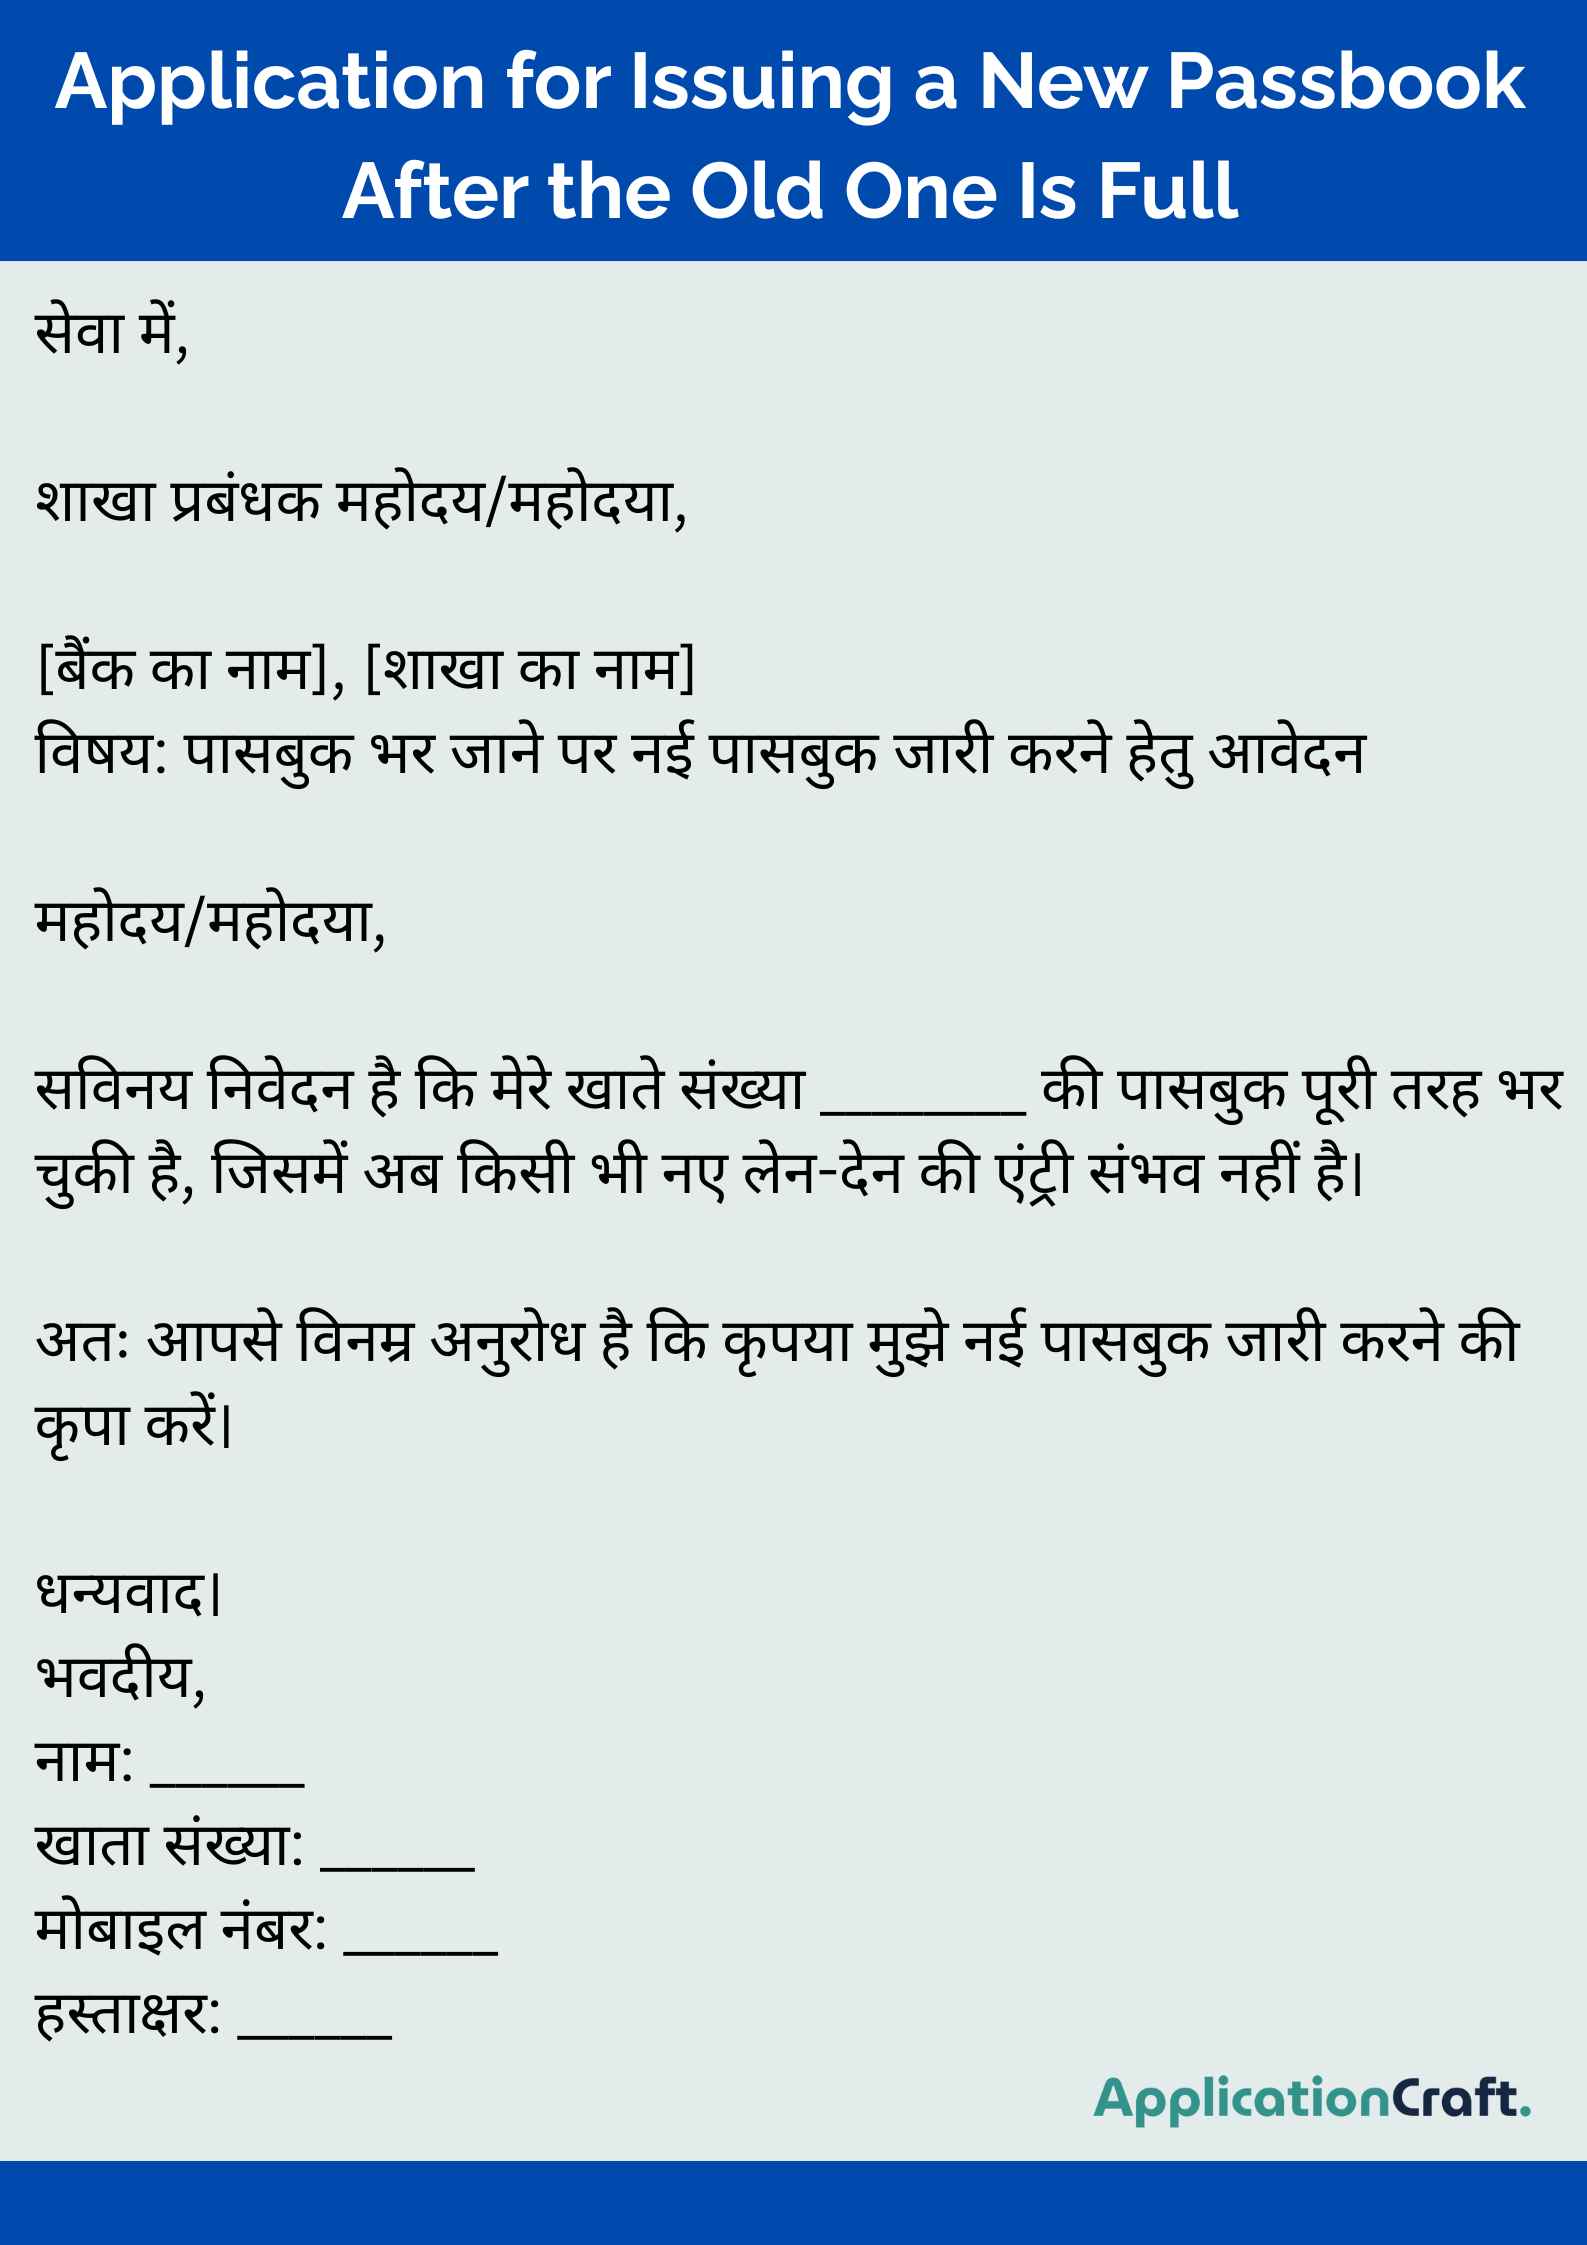 Application for Issuing a New Passbook
After the Old One Is Full
सेवा में,
शाखा प्रबंधक महोदय/महोदया,
[बैंक का नाम], [शाखा का नाम]
विषय: पासबुक भर जाने पर नई पासबुक जारी करने हेतु आवेदन
महोदय/महोदया,
सविनय निवेदन है कि मेरे खाते संख्या ________ की पासबुक पूरी तरह भर
चुकी है, जिसमें अब किसी भी नए लेन-देन की एंट्री संभव नहीं है।
अतः आपसे विनम्र अनुरोध है कि कृपया मुझे नई पासबुक जारी करने की
कृपा करें।
धन्यवाद।
भवदीय,
नाम: ______
खाता संख्या: ______
मोबाइल नंबर: ______
हस्ताक्षर: ______
ApplicationCraft.